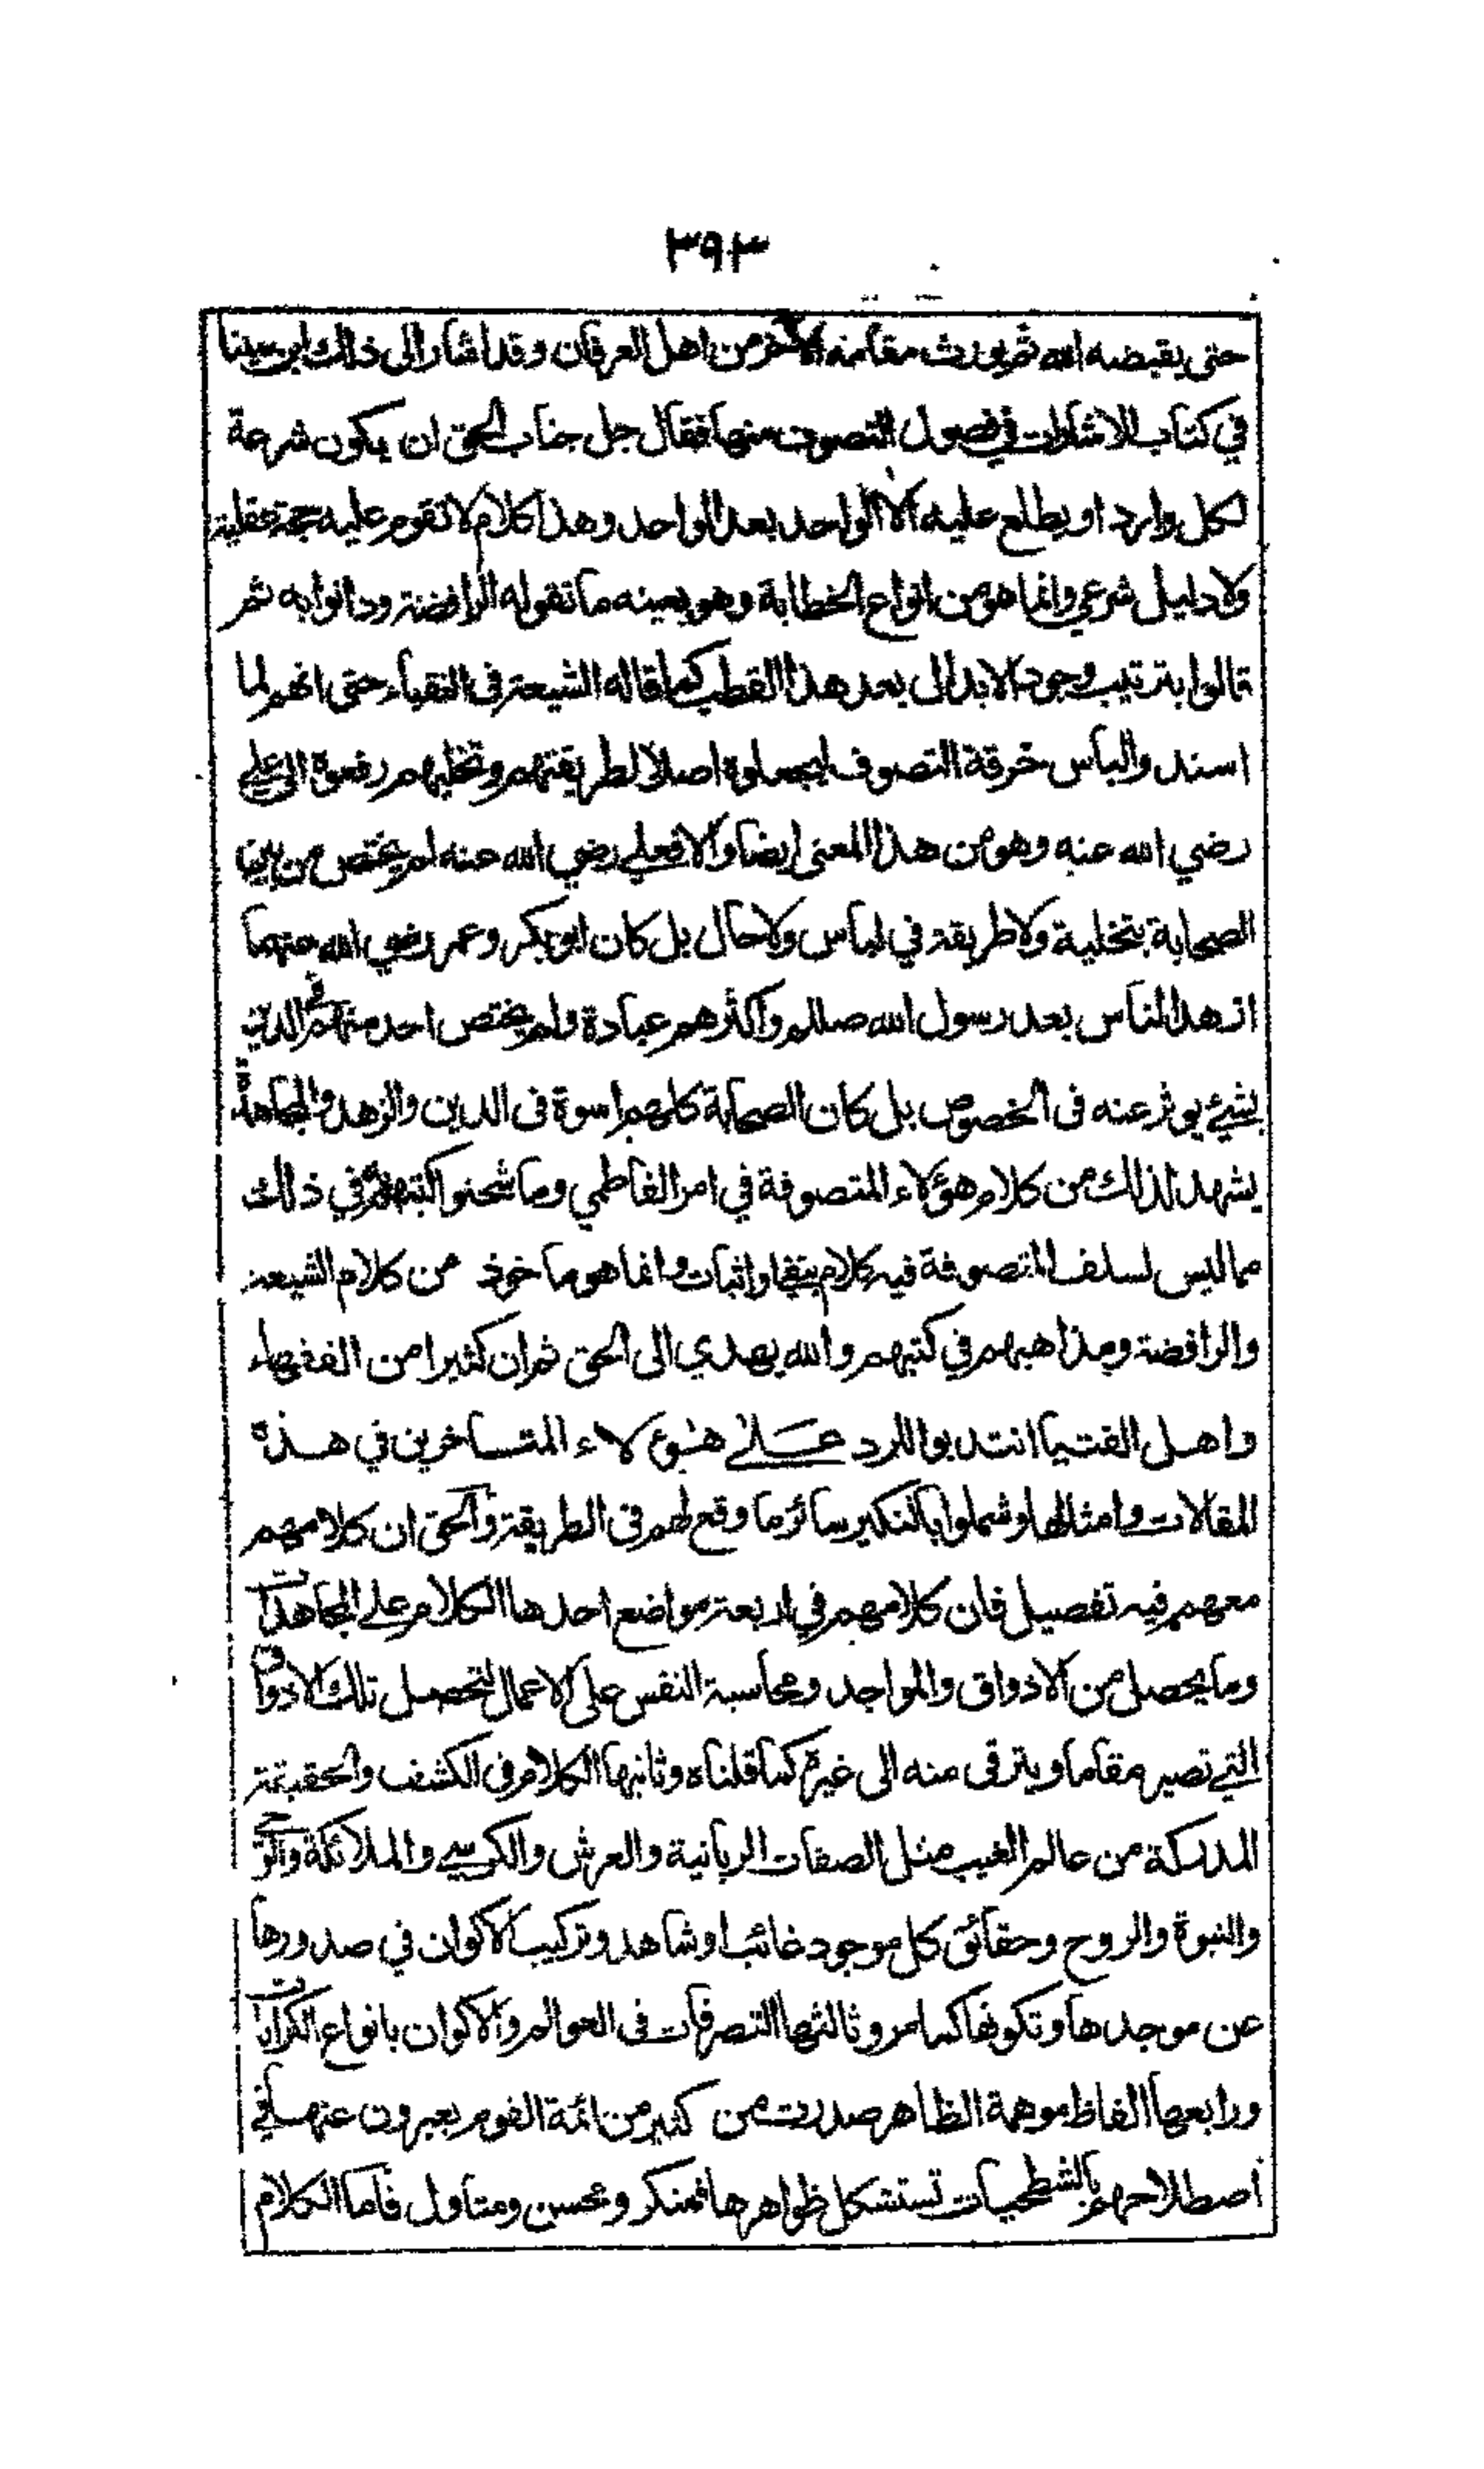 ٣٩٣
حتى يقبضه الله ثم يورث مقامه لآخر من اهل العرفان وقد اشار الى ذلك ابن سينا
في كتاب الاشارات في فصول التصوف منها فقال جل جناب الحق ان يكون شرعة
لكل وارد او يطلع عليه الا الواحد بعد الواحد وهذا كلام لا تقوم عليه حجة عقلية
ولا دليل شرعي وانما هو من انواع الخطابة وهو بعينه ما تقوله الرافضة ودانوا به ثم
قالوا بترتيب وجود الابدال بعد هذا القطب كما قاله الشيعة في النقباء حتى انهم لما
اسندوا لباس خرقة التصوف ليجعلوه اصلا لطريقتهم وتخليهم رفعوه الى علي
رضي الله عنه وهو من هذا المعنى ايضا والا فعلي رضي الله عنه لم يختص من بين
الصحابة بتخلية ولا طريقة في لباس ولا حال بل كان ابو بكر وعمر رضي الله عنهما
ازهد الناس بعد رسول الله صللم واكثرهم عبادة ولم يختص احد منهم في الدين
بشيء يوثر عنه في الخصوص بل كان الصحابة كلهم اسوة في الدين والزهد والمجاهدة
يشهد لذلك من كلام هؤلاء المتصوفة في امر الفاطمي وما شحنوا كتبهم في ذلك
مما ليس لسلف المتصوفة فيه كلام بنفي او اثبات وانما هو ماخوذ من كلام الشيعة
والرافضة ومذاهبهم في كتبهم والله يهدي الى الحق ثم ان كثيرا من الفقهاء
واهل الفتيا انتدبوا للرد على هؤلاء المتساخرين في هذه
المقالات وامثالها وشملوا بالنكير سائر ما وقع لهم في الطريقة والحق ان كلامهم
معهم فيه تفصيل فان كلامهم في اربعة مواضع احدها الكلام على المجاهدات
وما يحصل من الاذواق والمواجد ومحاسبة النفس على الاعمال لتحصل تلك الاذواق
التي تصير مقاما ويترقى منه الى غيره كما قلناه وثانيها الكلام في الكشف والحقيقة
المدركة من عالم الغيب مثل الصفات الربانية والعرش والكرسي والملائكة والوحي
والنبوة والروح وحقائق كل موجود غائب او شاهد وتركيب الاكوان في صدورها
عن موجدها وتكونها كما مر وثالثها التصرفات في العوالم والاكوان بانواع الكرامات
ورابعها الفاظ موهمة الظاهر صدرت من كثير من ائمة القوم يعبرون عنها في
اصطلاحهم بالشطحيات تستشكل ظواهرها فمنكر ومحسن ومتاول فاما الكلام